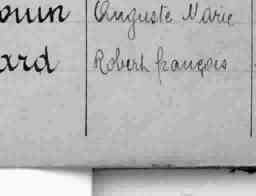 ouin Auguste Marie
ard Robert françois